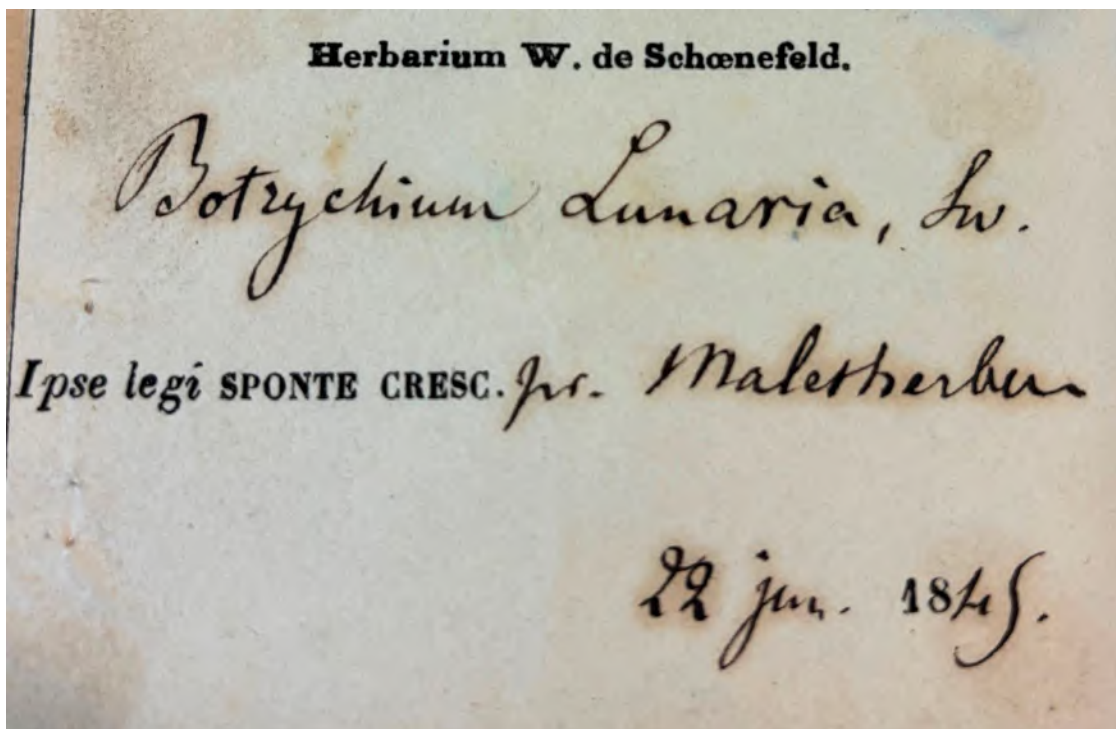 Herbarium W. de Schœnefeld.
Botrychium Lunaria, Sw.
Ipse legi SPONTE CRESC. pr. Malesherbes
22 jun. 1845.